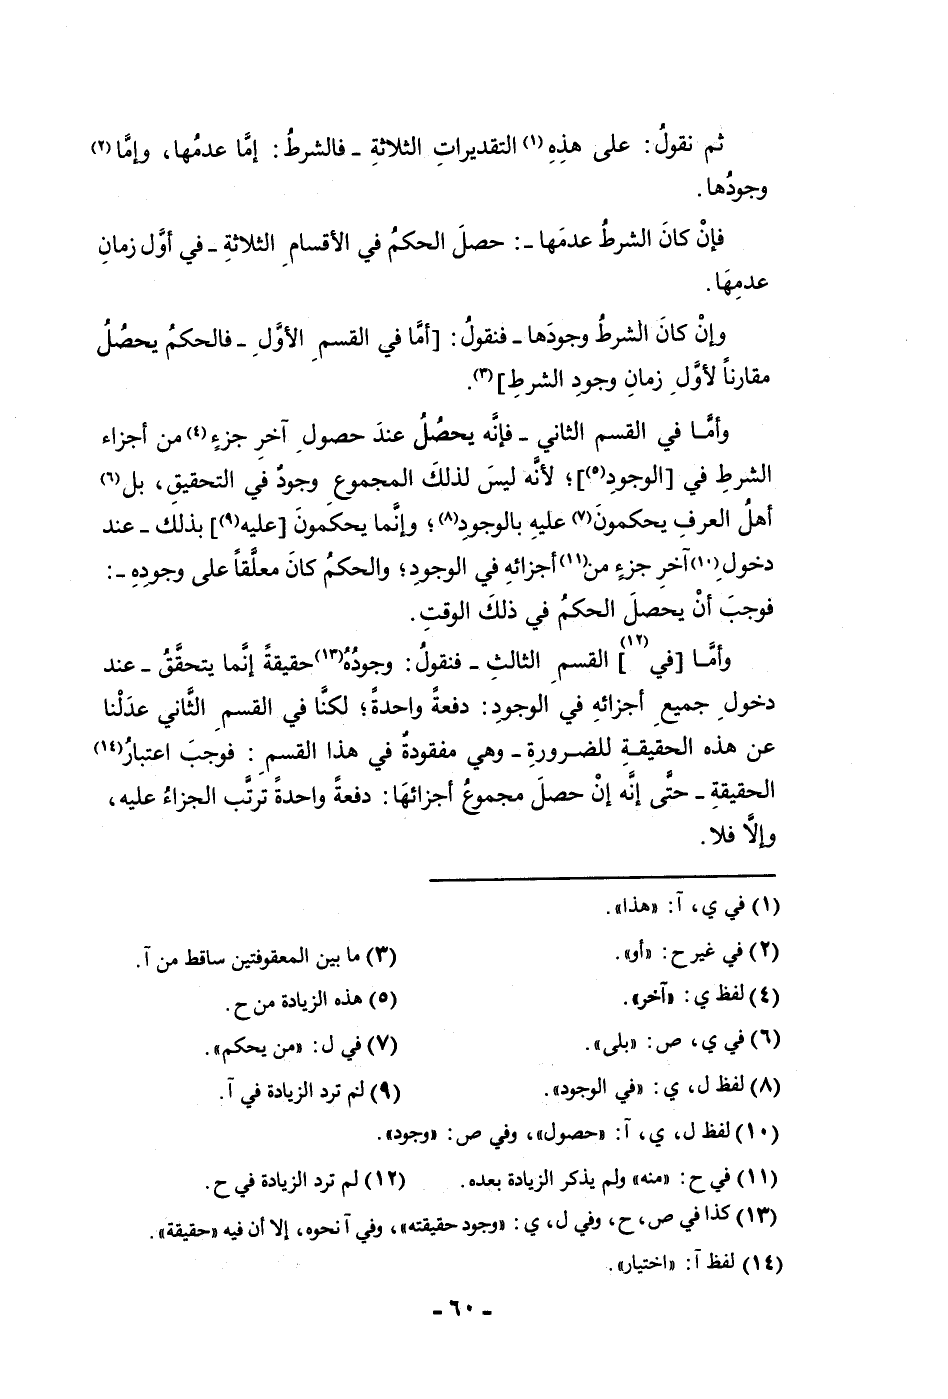 ثم نقولُ: على هذِهِ(١) التقديراتِ الثلاثةِ ـ فالشرطُ: إمَّا عدمُها، وإمَّا(٢)
وجودُها.
فإنْ كانَ الشرطُ عدمَها ـ: حصلَ الحكمُ في الأقسامِ الثلاثةِ ـ في أوَّل زمانِ
عدمِهَا.
وإنْ كانَ الشرطُ وجودَها ـ فنقولُ: [أمَّا في القسمِ الأوَّلِ ـ فالحكمُ يحصُلُ
مقارناً لأوَّلِ زمانِ وجودِ الشرطِ](٣).
وأمَّا في القسم الثاني ـ فإنَّه يحصُلُ عندَ حصولِ آخرِ جزءٍ(٤) من أجزاء
الشرطِ في [الوجودِ(٥)]؛ لأنَّه ليسَ لذلكَ المجموعِ وجودٌ في التحقيقِ، بل(٦)
أهلُ العرفِ يحكمونَ(٧) عليهِ بالوجودِ(٨)؛ وإنَّما يحكمونَ [عليه(٩)] بذلك ـ عند
دخولِ(١٠) آخرِ جزءٍ من(١١) أجزائهِ في الوجودِ؛ والحكمُ كانَ معلَّقاً على وجودِهِ ـ:
فوجبَ أنْ يحصلَ الحكمُ في ذلكَ الوقتِ.
وأمَّا [في(١٢)] القسمِ الثالثِ ـ فنقولُ: وجودُهُ(١٣) حقيقةً إنَّما يتحقَّقُ ـ عند
دخولِ جميعِ أجزائهِ في الوجودِ: دفعةً واحدةً؛ لكنَّا في القسمِ الثَّاني عدَلْنا
عن هذه الحقيقةِ للضرورةِ ـ وهي مفقودةٌ في هذا القسمِ: فوجبَ اعتبارُ(١٤)
الحقيقةِ ـ حتَّى إنَّه إنْ حصلَ مجموعُ أجزائهَا: دفعةً واحدةً ترتَّب الجزاءُ عليه،
وإلَّا فلا.
(١) في ي، آ: «هذا».
(٢) في غير ح: «أو». (٣) ما بين المعقوفتين ساقط من آ.
(٤) لفظ ي: «آخر». (٥) هذه الزيادة من ح.
(٦) في ي، ص: «بلى». (٧) في ل: «من يحكم».
(٨) لفظ ل، ي: «في الوجود». (٩) لم ترد الزيادة في آ.
(١٠) لفظ ل، ي، آ: «حصول»، وفي ص: «وجود».
(١١) في ح: «منه» ولم يذكر الزيادة بعده. (١٢) لم ترد الزيادة في ح.
(١٣) كذا في ص، ح، وفي ل، ي: «وجود حقيقته»، وفي آ نحوه، إلا أن فيه «حقيقة».
(١٤) لفظ آ: «اختيار».
ـ ٦٠ ـ